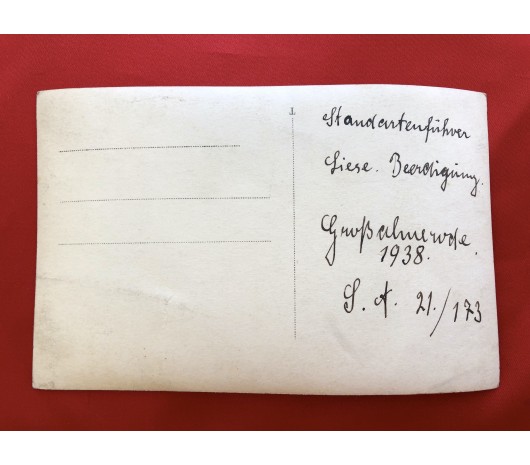 Standartenführer
Liese. Beerdigung.
Großalmerode.
1938.
S. A. 21./173